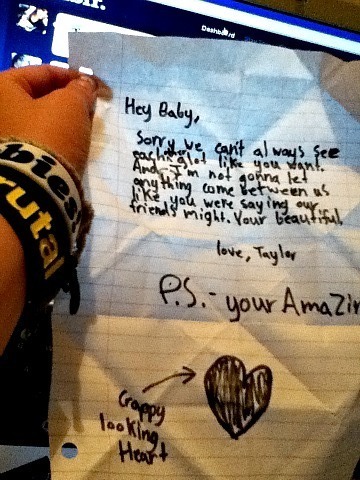 Dashboard
Hey Baby,
Sorry we can't always see
alot like you want.
And I'm not gonna let
anything come between us
like you were saying our
friends might. Your beautiful.
love, Taylor
P.S.- your AmaZin
Crappy
looking
Heart
rutal